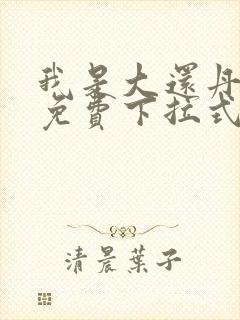 我是大還丹
免費下拉式
清晨葉子